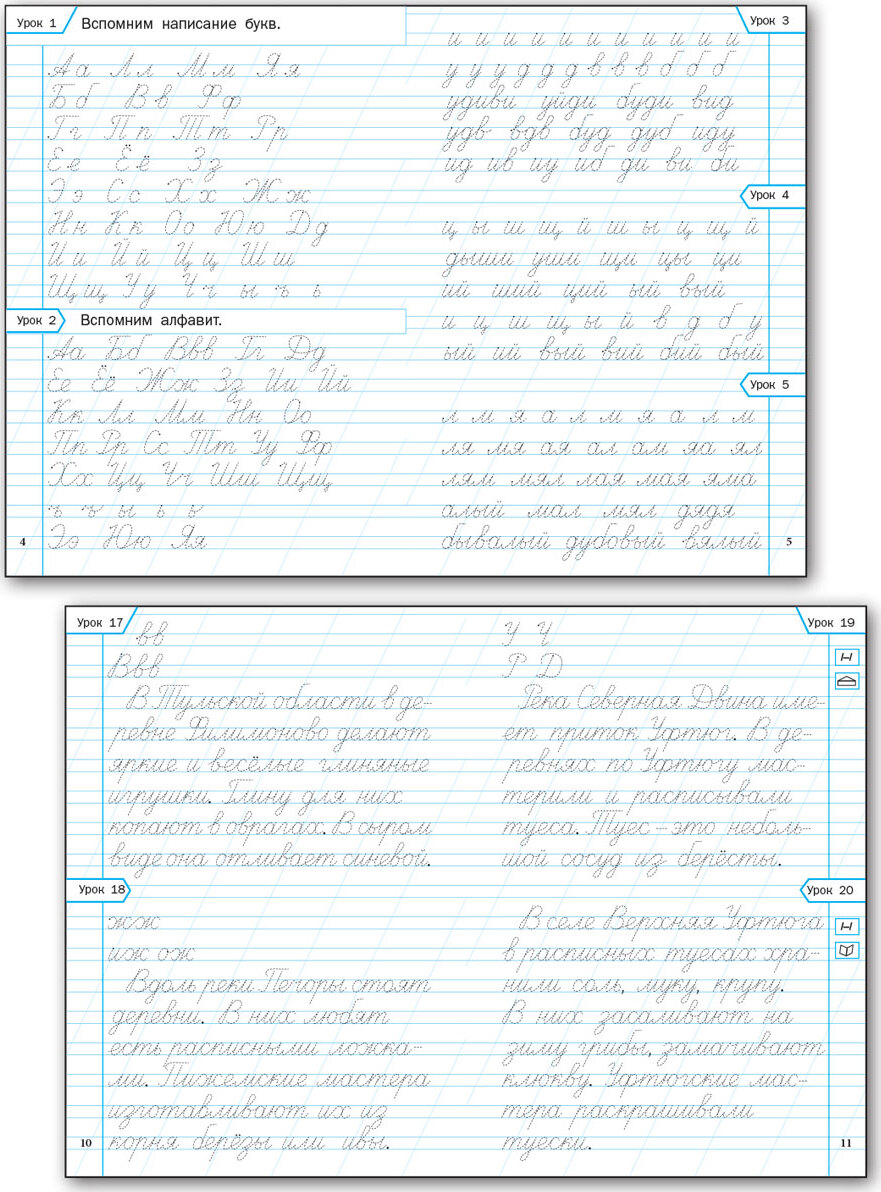 Урок 1 Вспомним написание букв.
Аа Лл Мм Яя
Бб Вв Фф
Гг Пп Тт Рр
Ее Ёё Зз
Ээ Сс Хх Жж
Нн Кк Оо Юю Дд
Ии Йй Цц Шш
Щщ Уу Чч ы ъ ь
Урок 2 Вспомним алфавит.
Аа Бб Ввв Гг Дд
Ее Ёё Жж Зз Ии Йй
Кк Лл Мм Нн Оо
Пп Рр Сс Тт Уу Фф
Хх Цц Чч Шш Щщ
ъ ъ ы ь ь
Ээ Юю Яя
4
Урок 3
и и и и и и и и и и и
у у у д д д в в в б б б
удиви уйди буди вид
удв вдв буд дуб иду
ид ив иу иб ди ви би
Урок 4
ц ы ш щ й ш ы ц щ й
дыши уши щи цы ци
ий ший ций ый вый
и ц ш щ ы й в д б у
ый ий вый вий бий бый
Урок 5
л м я а л м я а л м
ля мя ая ал ам яа ял
лям мял лая мая яма
алый мал мял дядя
бывалый дубовый вялый
5
Урок 17
вв
Ввв
В Тульской области в де-
ревне Филимоново делают
яркие и весёлые глиняные
игрушки. Глину для них
копают в оврагах. В сыром
виде она отливает синевой.
Урок 18
жж
иж ож
Вдоль реки Печоры стоят
деревни. В них любят
есть расписными ложка-
ми. Пижемские мастера
изготавливают их из
корня берёзы или ивы.
10
Урок 19
У Ч
Р Д
Река Северная Двина име-
ет приток Уфтюг. В де-
ревнях по Уфтюгу мас-
терили и расписывали
туеса. Туес – это неболь-
шой сосуд из берёсты.
Урок 20
В селе Верхняя Уфтюга
в расписных туесах хра-
нили соль, муку, крупу.
В них засаливают на
зиму грибы, замачивают
клюкву. Уфтюгские мас-
тера раскрашивали
туески.
11